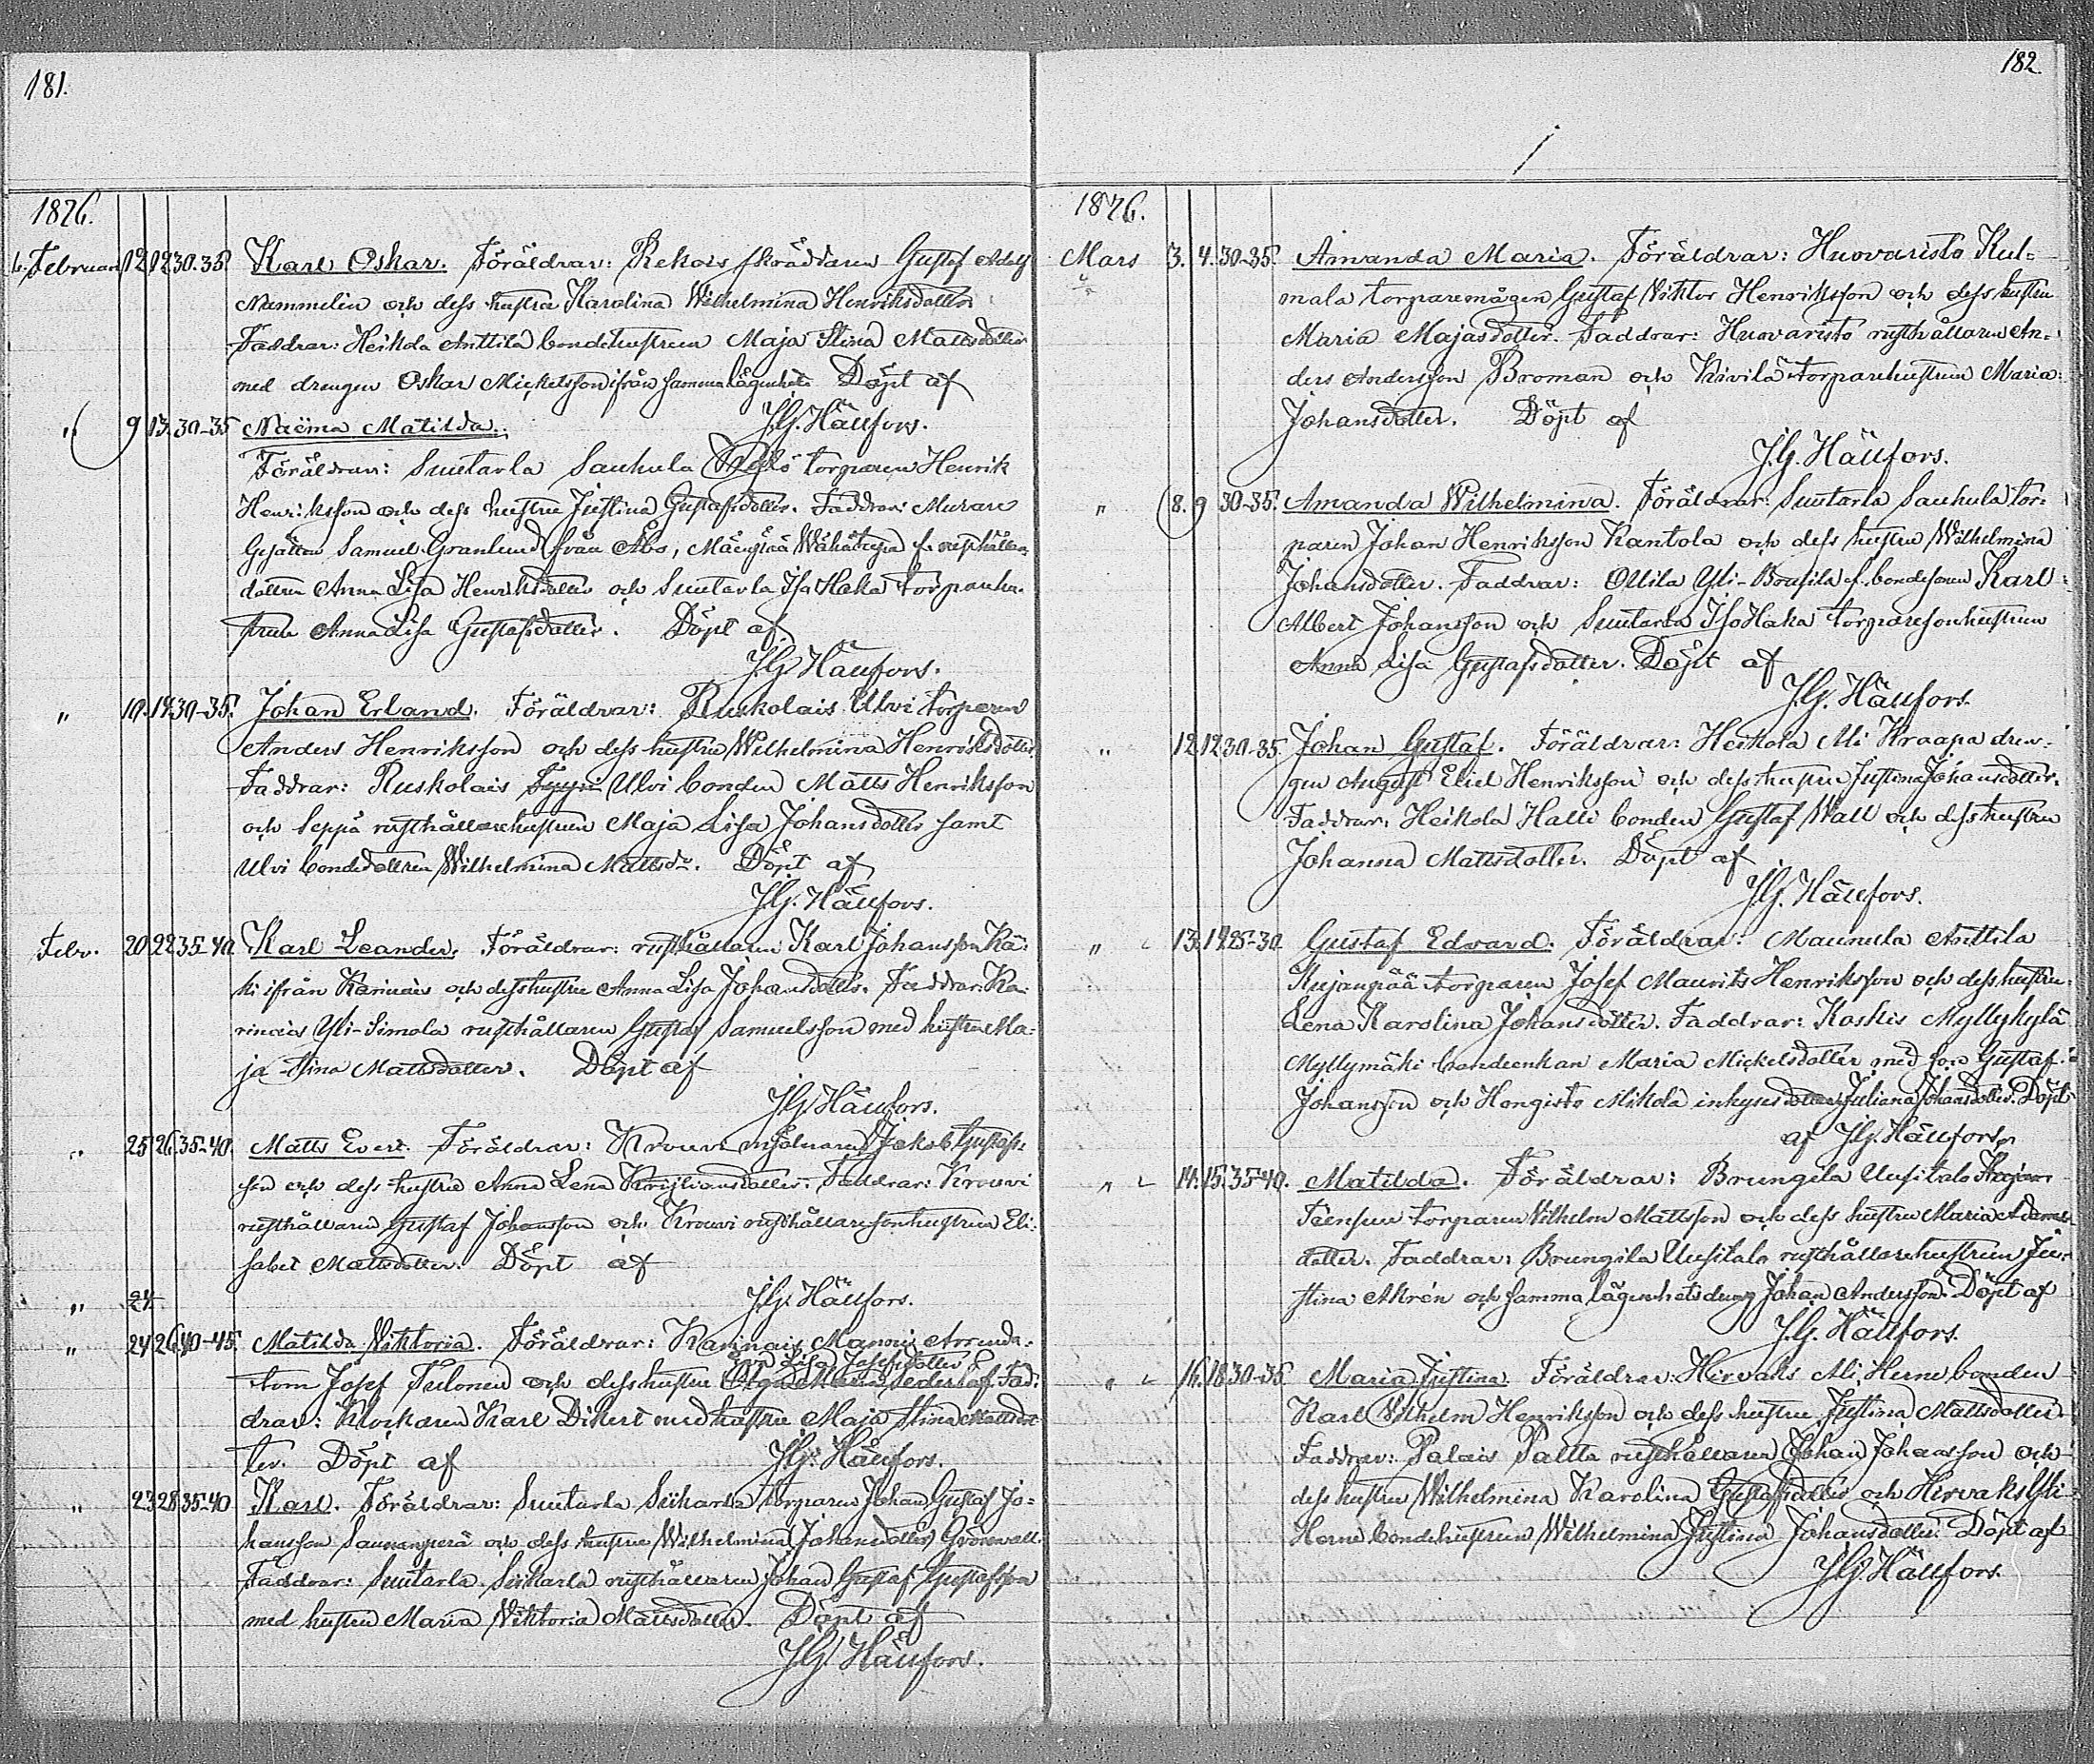 181.
1876.
Februari 12 12 30-35. Karl Oskar. Föräldrar: Rekois skräddaren Gustaf Adolf
Nummelin och dess hustru Karolina Wilhelmina Henriksdotter
Faddrar: Heikola Anttila bondehustrun Maja Stina Mattsdotter
med drengen Oskar Mickelsson ifrån samma lägenhet. Döpt af
J.G. Hällfors.
" 9 13. 30-35 Naëma Matilda.
Föräldrar: Suutarla Sauhula torparen Henrik
Henriksson och dess hustru Justina Gustafsdotter. Faddrar: Murare
Gesällen Samuel Granlund från Åbo, Mäenpää
dottren Anna Lisa Henriksdotter och Suutarla Iso Haka torparehu-
strun Anna Lisa Gustafsdotter. Döpt af
J.G. Hällfors.
" 10. 14. 30-35. Johan Erland. Föräldrar: Ruskolais Ulvi torparen
Anders Henriksson och dess hustru Wilhelmina Henriksdotter.
Faddrar: Ruskolais Ulvi bonden Matts Henriksson
och Seppä rusthållarehustrun Maja Lisa Johansdotter samt
Ulvi bondedottren Wilhelmina Mattsdr. Döpt af
J.G. Hällfors.
Febr. 20. 22. 35-40. Karl Leander. Föräldrar: rusthållaren Karl Johansson Kä-
ki ifrån Karinais och dess hustru Anna Lisa Johansdotter. Faddrar: Ka-
rinais Yli-Simola rusthållaren Gustaf Samuelsson med hustru Ma-
ja Stina Mattsdotter. Döpt af
J.G. Hällfors.
" 25 26. 35-40. Matts Evert. Föräldrar: Krouvi mjölnaren Jakob Gustafs-
son och dess hustru Anna Lena Kristiansdotter. Faddrar: Krouvi
rusthållaren Gustaf Johansson och Krouvi rusthållaresonhustrun Eli-
sabet Mattsdotter. Döpt af
" 24 J.G. Hällfors.
" 24 26. 40-45. Matilda Viktoria. Föräldrar: Karinais Manni Arrenda-
Lisa Josefsdotter
torn Josef Tulonen och dess hustru Fad-
drar: Klockaren Karl Dikert med hustru Maja Stina Mattsdot-
ter. Döpt af J.G. Hällfors.
" 23 28 35-40 Karl. Föräldrar: Suutarla Siikarla torparen Johan Gustaf Jo-
hansson Saunanperä och dess hustru Wilhelmina Johansdotter Grönwall.
Faddrar: Suutarla Siikarla rusthållaren Johan Gustaf Gustafsson
med hustru Maria Viktoria Mattsdotter. Döpt af
J.G. Hällfors.
182.
1876.
Mars 3. 4. 30-35. Amanda Maria. Föräldrar: Huovaristo Kul-
mala torparemågen Gustaf Viktor Henriksson och dess hustru
Maria Majasdotter. Faddrar: Huovaristo rusthållaren An-
ders Andersson Broman och Kivilä torparehustrun Maria
Johansdotter. Döpt af
J.G. Hällfors.
" 8. 9 30-35. Amanda Wilhelmina. Föräldrar: Suutarla Sauhula tor-
paren Johan Henriksson Kantola och dess hustru Wilhelmina
Johansdotter. Faddrar: Ollila Yli-Bousila f. bondesonen Karl
Albert Johansson och Suutarla Iso Haka torparesonhustrun
Anna Lisa Gustafsdotter. Döpt af
J.G. Hällfors.
" 12 12. 30-35. Johan Gustaf. Föräldrar: Heikola Ali Kraapa dren-
gen August Eliel Henriksson och dess hustru Justina Johansdotter.
Faddrar: Heikola Halli bonden Gustaf Wall och dess hustru
Johanna Mattsdotter. Döpt af
J.G. Hällfors.
" 13. 19. 25-30. Gustaf Edvard. Föräldrar: Maunula Anttila
Kujanpää torparen Josef Maurits Henriksson och dess hustru
Lena Karolina Johansdotter. Faddrar: Koskis Myllykylä
Myllymäki bondeenkan Maria Mickelsdotter med son Gustaf
Johansson och Hongisto Mikola inhyses dottren Juliana Johansdotter. Döpt
af J.G. Hällfors.
" 14. 15. 35-40. Matilda. Föräldrar: Brungila Uusitalo
torparen Vilhelm Mattsson och dess hustru Maria Adams-
dotter. Faddrar: Brungila Uusitalo rusthållarehustrun Ju-
stina Akrén och samma lägenhets dreng Johan Andersson. Döpt af
J.G. Hällfors.
" 16. 18. 30-35. Maria Justina. Föräldrar: Hirvaks Ali Herne bonden
Karl Vilhelm Henriksson och dess hustru Justina Mattsdotter.
Faddrar: Palais Paltta rusthållaren Johan Johansson och
dess hustru Wilhelmina Karolina Gustafsdotter och Hirvaks Yli
Herne bondehustrun Wilhelmina Justina Johansdotter. Döpt af
J.G. Hällfors.